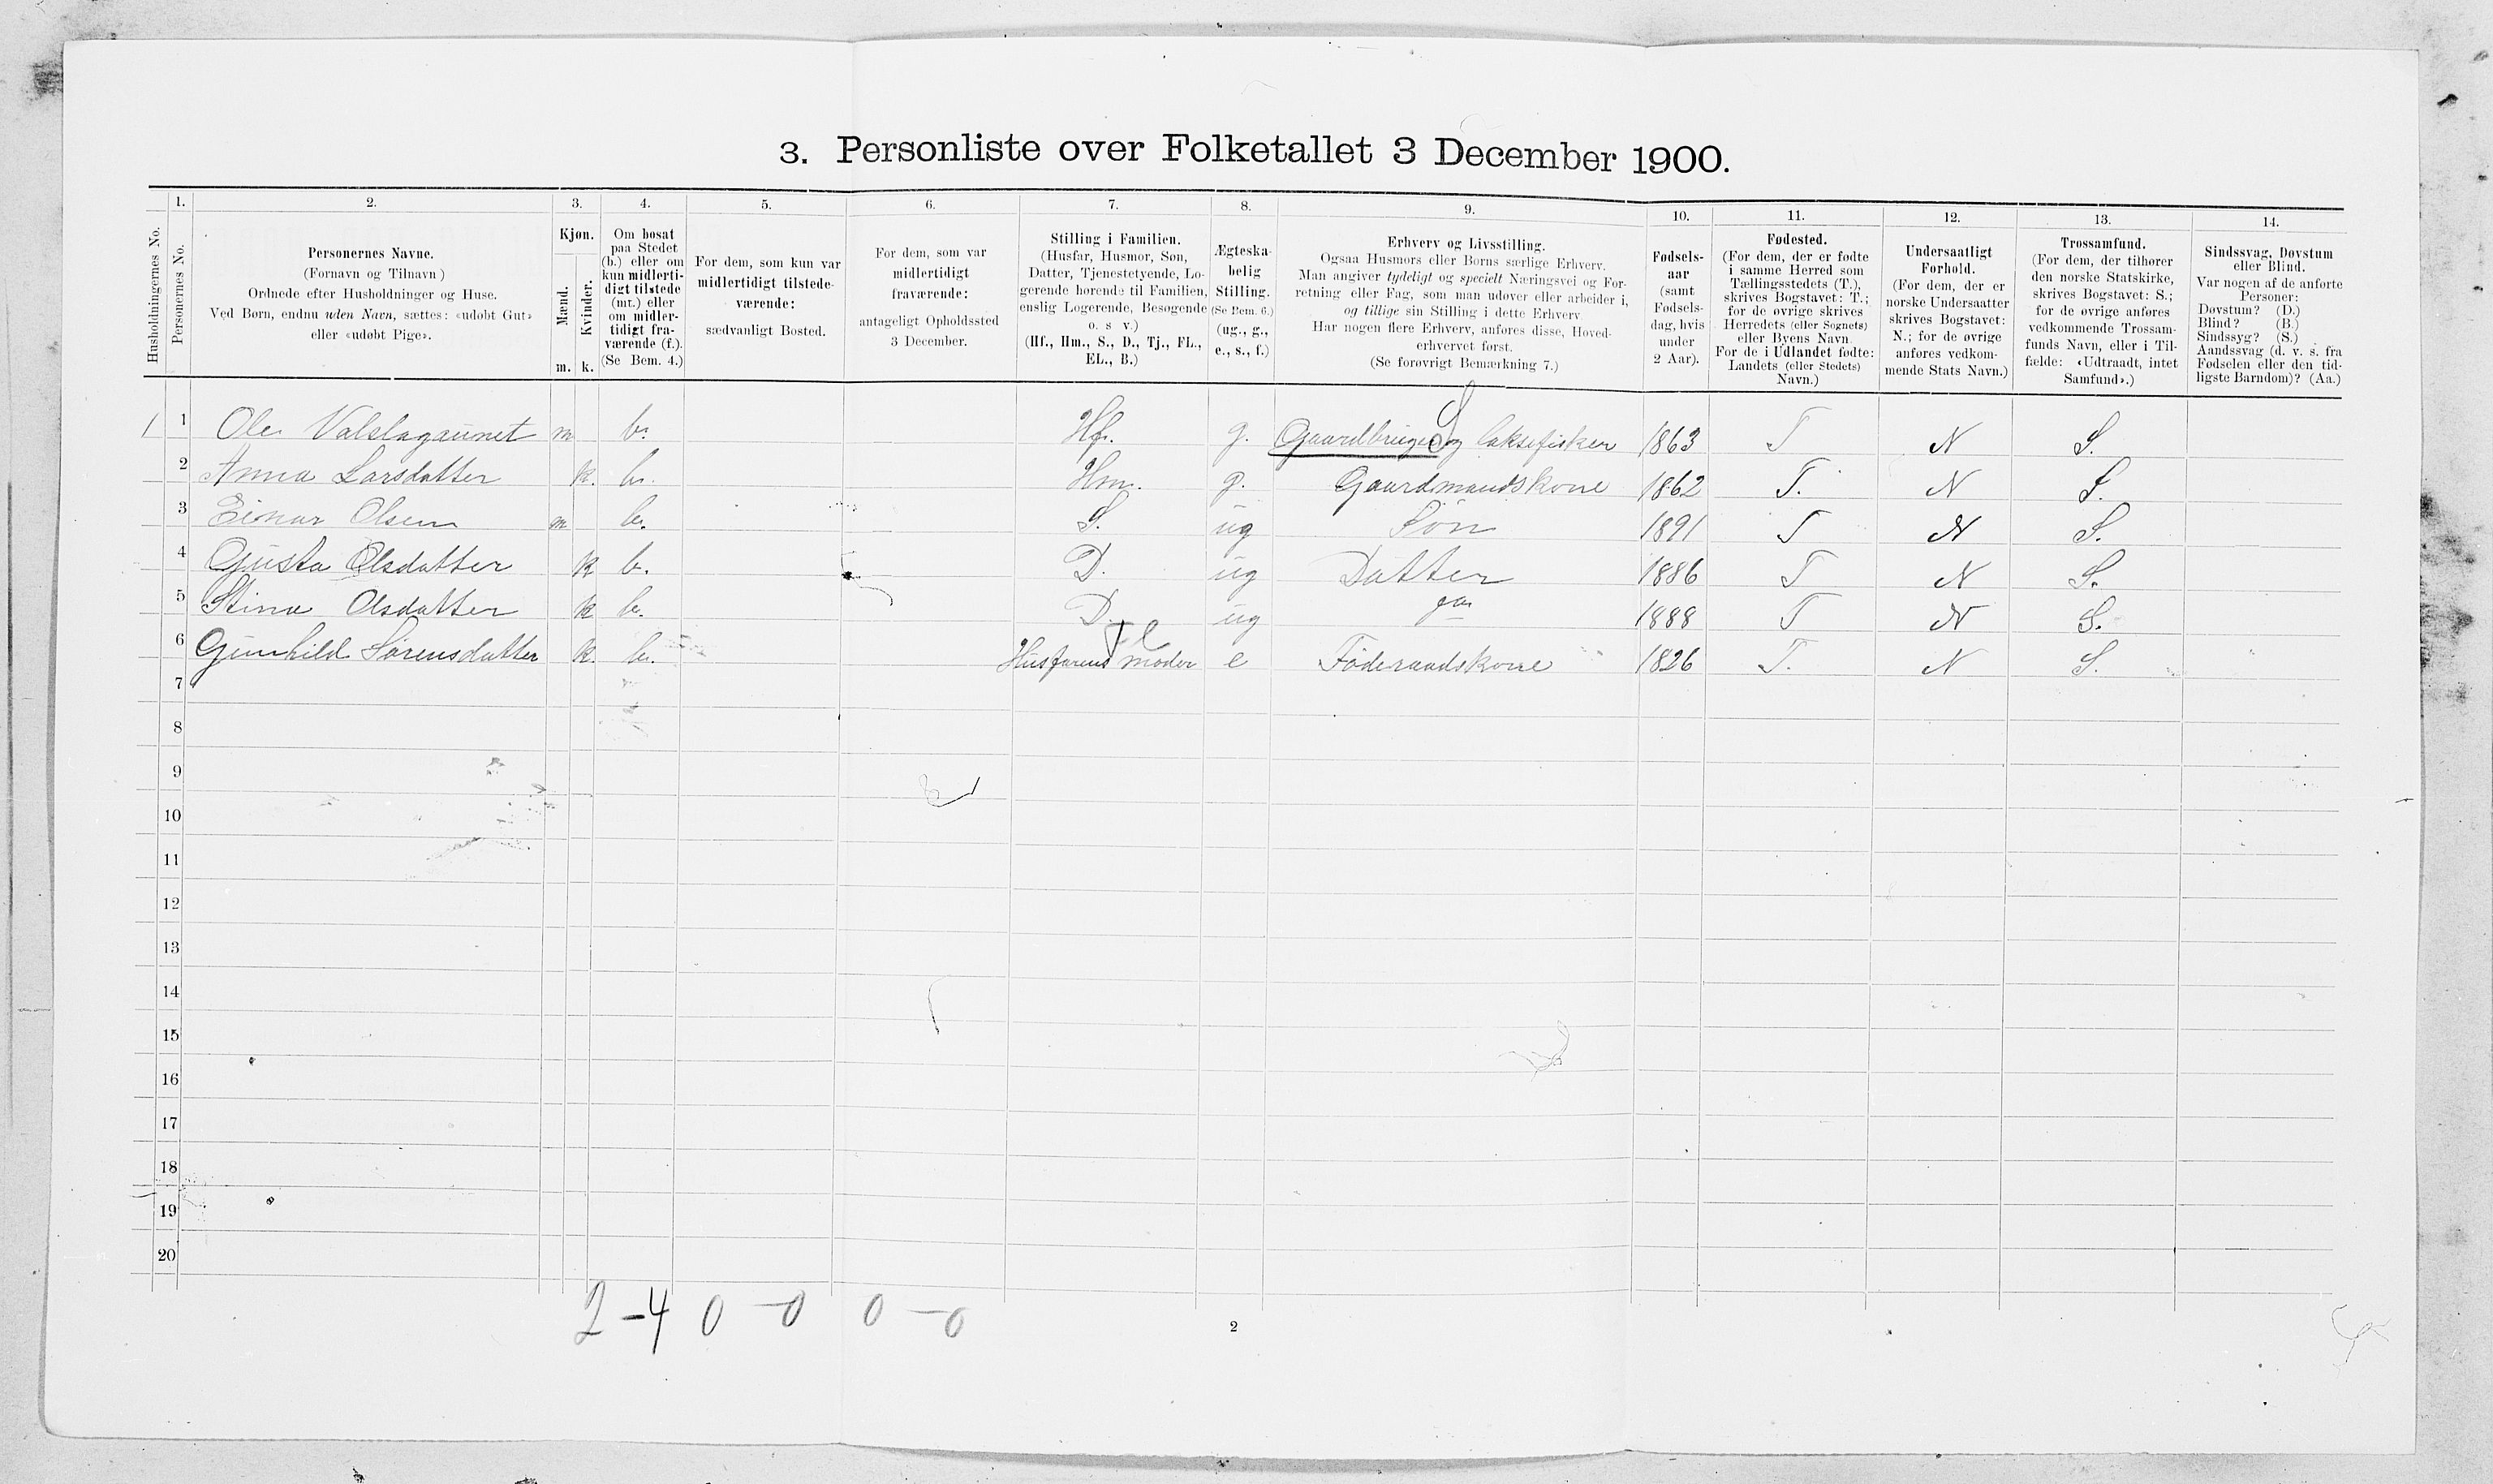 3. Personliste over Folketallet 3 December 1900.
1. 2. 3. 4. 5. 6. 7. 8. 9. 10. 11. 12. 13. 14.
Husholdningernes No.
Personernes No.
Personernes Navne.
(Fornavn og Tilnavn)
Ordnede efter Husholdninger og Huse.
Ved Børn, endnu uden Navn, sættes: «udøbt Gut»
eller «udøbt Pige».
Kjøn.
Mænd.
Kvinder.
m. k.
Om bosat
paa Stedet
(b.) eller om
kun midlerti-
digt tilstede
(mt.) eller
om midler-
tidigt fra-
værende (f.).
(Se Bem. 4.)
For dem, som kun var
midlertidigt tilstede-
værende:
sædvanligt Bosted.
For dem, som var
midlertidigt
fraværende:
antageligt Opholdssted
3 December.
Stilling i Familien.
(Husfar, Husmor, Søn,
Datter, Tjenestetyende, Lo-
gerende hørende til Familien,
enslig Logerende, Besøgende
o. s v.)
(Hf., Hm., S., D., Tj., FL.,
EL., B.)
Ægteska-
belig
Stilling.
(Se Bem. 6.)
(ug., g.,
e., s., f.)
Erhverv og Livsstilling.
Ogsaa Husmors eller Børns særlige Erhverv.
Man angiver tydeligt og specielt Næringsvei og For-
retning eller Fag, som man udøver eller arbeider i,
og tillige sin Stilling i dette Erhverv
Har nogen flere Erhverv, anføres disse, Hoved-
erhvervet først.
(Se forøvrigt Bemærkning 7.)
Fødsels-
aar
(samt
Fødsels-
dag, hvis
under
2 Aar).
Fødested.
(For dem, der er fødte
i samme Herred som
Tællingsstedets (T.),
skrives Bogstavet: T.;
for de øvrige skrives
Herredets (eller Sognets)
eller Byens Navn.
For de i Udlandet fødte:
Landets (eller Stedets)
Navn.)
Undersaatligt
Forhold.
(For dem, der er
norske Undersaatter
skrives Bogstavet:
N.; for de øvrige
anføres vedkom-
mende Stats Navn.)
Trossamfund.
(For dem, der tilhører
den norske Statskirke,
skrives Bogstavet: S.;
for de øvrige anføres
vedkommende Trossam-
funds Navn, eller i Til-
fælde: «Udtraadt, intet
Samfund».)
Sindssvag, Døvstum
eller Blind.
Var nogen af de anførte
Personer:
Døvstum? (D.)
Blind? (B.)
Sindssyg? (S.)
Aandssvag (d. v. s. fra
Fødselen eller den tid-
ligste Barndom)? (Aa.)
1 1 Ole Valslagaunet m b. Hf. g. Gaardbruger og laksefisker 1863 T N S.
2 Anna Larsdatter k. b. Hm. g. Gaardmandskone 1862 T. N S.
3 Einar Olsen m b. S. ug Søn 1891 T N S.
4 Gusta Olsdatter k b. D. ug Datter 1886 T N S.
5 Stina Olsdatter k b. D. ug 1888 T N S.
6 Gunhild Sørensdatter k. b. Husfarens moder e Føderaadskone 1826 T. N S.
7
8
9
10
11
12
13
14
15
16
17
18
19
20
2-4 0-0 0-0
2